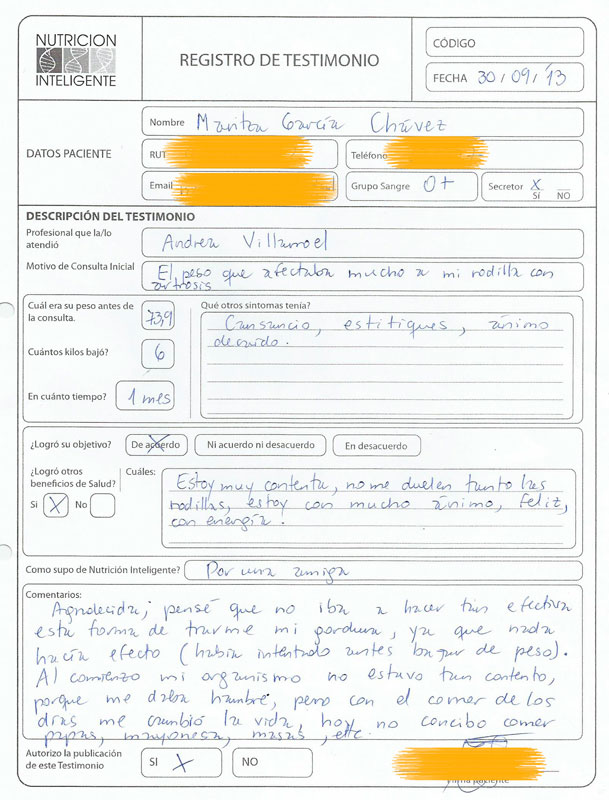 NUTRICION
INTELIGENTE
REGISTRO DE TESTIMONIO
CÓDIGO
FECHA 30/09/13
DATOS PACIENTE
Nombre Maritza García Chávez
RUT
Teléfono
Email
Grupo Sangre O+
Secretor X
SÍ NO
DESCRIPCIÓN DEL TESTIMONIO
Profesional que la/lo
atendió
Andrea Villarroel
Motivo de Consulta Inicial
El peso que afectaba mucho a mi rodilla con
artrosis
Cuál era su peso antes de
la consulta.
73,9
Qué otros sintomas tenía?
Cansancio, estitiques, ánimo
decaído.
Cuántos kilos bajó?
6
En cuánto tiempo?
1 mes
¿Logró su objetivo?
De acuerdo
Ni acuerdo ni desacuerdo
En desacuerdo
¿Logró otros
beneficios de Salud?
Si X No
Cuáles:
Estoy muy contenta, no me duelen tanto las
rodillas, estoy con mucho ánimo, feliz,
con energía.
Como supo de Nutrición Inteligente?
Por una amiga
Comentarios:
Agradecida; pensé que no iba a hacer tan efectiva
esta forma de trarme mi gordura, ya que nada
hacía efecto (había intentado antes bajar de peso).
Al comienzo mi organismo no estavo tan contento,
porque me daba hambre, pero con el comer de los
días me cambió la vida, hoy no concibo comer
papas, mayonesa, masas, etc.
Autorizo la publicación
de este Testimonio
SI X
NO
Firma paciente